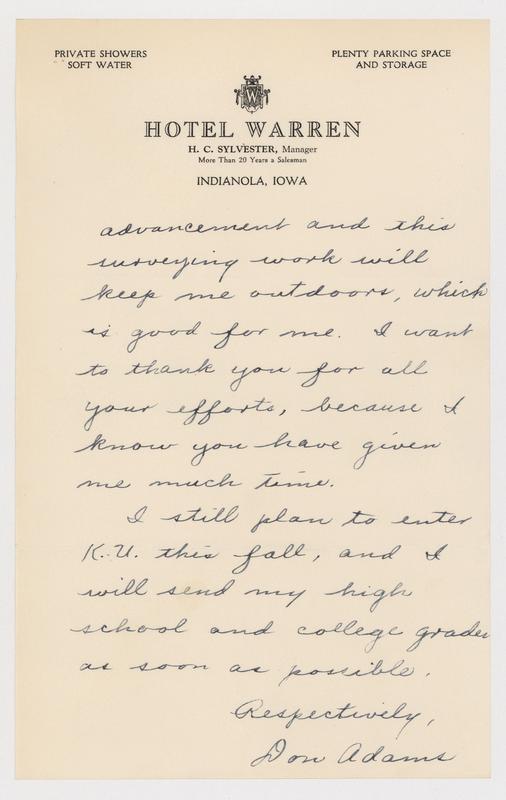 PRIVATE SHOWERS
SOFT WATER
PLENTY PARKING SPACE
AND STORAGE
W
HOTEL WARREN
H. C. SYLVESTER, Manager
More Than 20 Years a Salesman
INDIANOLA, IOWA
advancement and this
surveying work will
keep me outdoors, which
is good for me. I want
to thank you for all
your efforts, because I
know you have given
me much time.
I still plan to enter
K.U. this fall, and I
will send my high
school and college grades
as soon as possible.
Respectively,
Don Adams